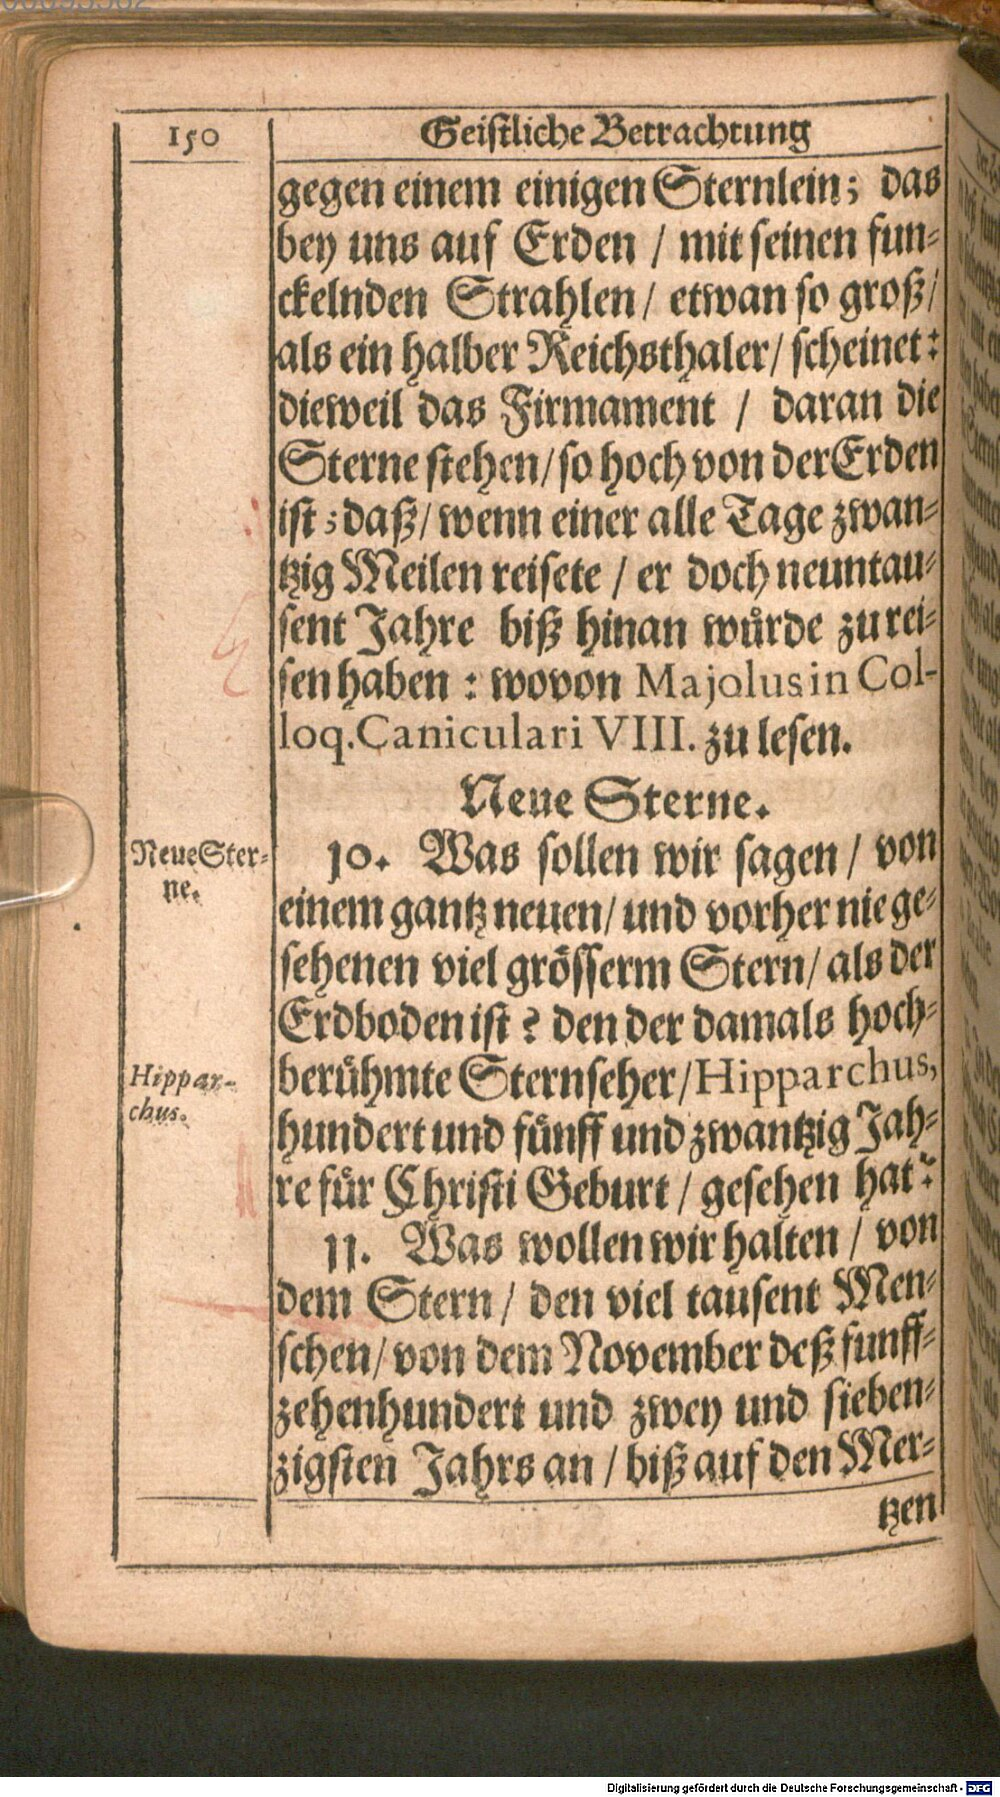 150
Geistliche Betrachtung
gegen einem einigen Sternlein; das
bey uns auf Erden / mit seinen fun-
ckelnden Strahlen / etwan so groß /
als ein halber Reichsthaler / scheinet:
dieweil das Firmament / daran die
Sterne stehen / so hoch von der Erden
ist; daß / wenn einer alle Tage zwan-
tzig Meilen reisete / er doch neuntau-
sent Jahre biß hinan würde zu rei-
sen haben: wovon Majolus in Col-
loq. Caniculari VIII. zu lesen.
Neue Sterne.
Neue Ster-
ne.
10. Was sollen wir sagen / von
einem gantz neuen / und vorher nie ge-
sehenen viel grösserm Stern / als der
Erdboden ist? den der damals hoch-
Hippar-
chus.
berühmte Sternseher / Hipparchus,
hundert und fünff und zwantzig Jah-
re für Christi Geburt / gesehen hat?
11. Was wollen wir halten / von
dem Stern / den viel tausent Men-
schen / von dem November deß funff-
zehenhundert und zwey und sieben-
zigsten Jahrs an / biß auf den Mer-
tzen
Digitalisierung gefördert durch die Deutsche Forschungsgemeinschaft - DFG